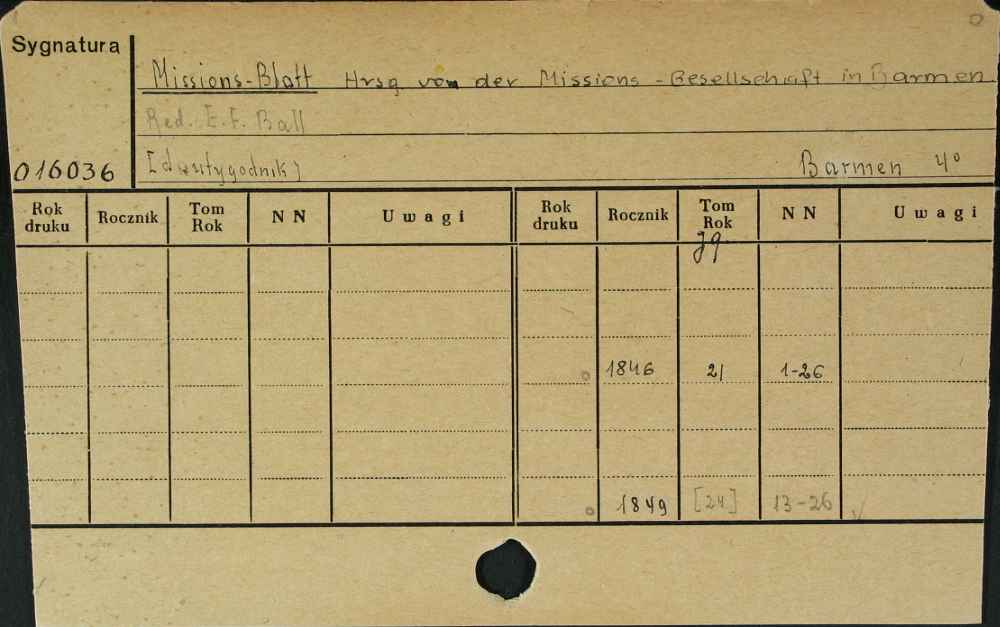 Sygnatura
Missions-Blatt Hrsg von der Missions-Gesellschaft in Barmen
Red. E. F. Ball
[dwutygodnik]
Barmen 4º
016036
Rok druku Rocznik Tom Rok N N Uwagi Rok druku Rocznik Tom Rok N N Uwagi
Jg.
1846 21 1-26
1849 [24] 13-26